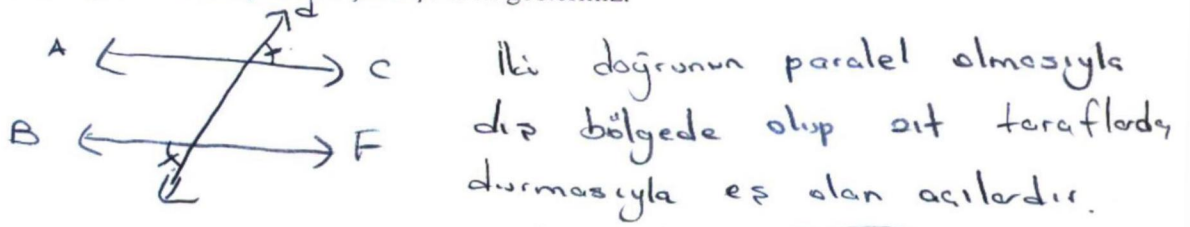 d
A C
B F
İki doğrunun paralel olmasıyla
dış bölgede olup zıt taraflarda
durmasıyla eş olan açılardır.